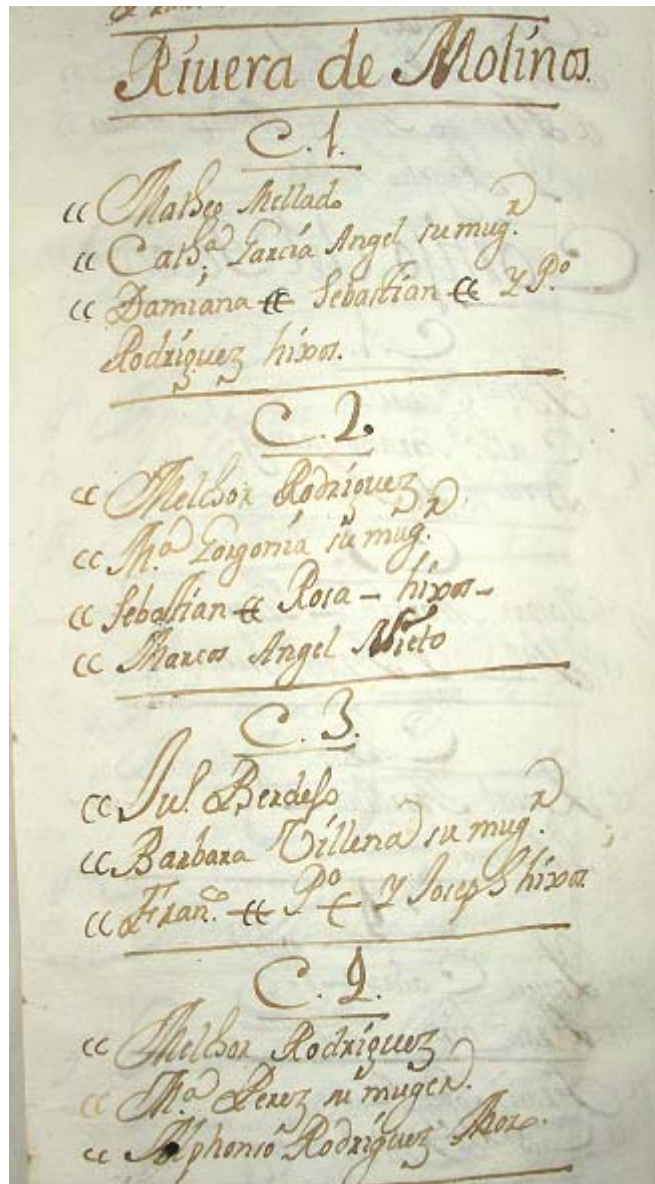 Riuera de Molinos.
C. 1.
« Matheo Mellado
« Cathª Garcia Angel su mugr.
« Damiana « Sebastian « y Pº.
Rodriguez hixos.
C. 2.
« Melchor Rodriguez.
« Mª Gorgonia su mugr.
« Sebastian « Rosa - hixos -
« Marcos Angel Nieto
C. 3.
« Jul. Berdejo
« Barbara Villena su mugr.
« Franco. « Pº « y Joseph hixos
C. 4.
« Melchor Rodriguez
« Mª. Perez su muger.
« Alphonso Rodriguez